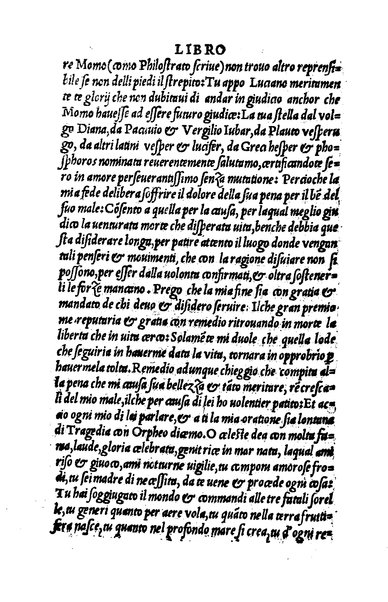 LIBRO
re Momo (como Philostrato scriue) non trouo altro reprensi-
bile se non delli piedi il strepito: Tu appo Luciano meritamen
te te glorij che non dubitaui di andar in giudicio anchor che
Momo hauesse ad essere futuro giudice: La tua stella dal vol-
go Diana, da Pacuuio & Vergilio Iubar, da Plauto vesperu
go, da altri latini vesper & lucifer, da Greci hesper & pho-
sphoros nominata reuerentemente salutamo, certificandote se-
ro in amore perseuerantissimo senza mutatione: Percioche la
mia fede delibera soffrire il dolore della sua pena per il bē del
suo male: Cōsento a quella per la causa, per laqual meglio giu
dico la venturata morte che disperata uita, benche debbia que
sta disiderare longa, per patire attento il luogo donde vengon
tali penseri & mouimenti, che con la ragione disuiare non si
possono, per esser dalla uolonta confirmati, & oltra sostener-
li le forze mancano. Prego che la mia fine sia con gratia &
mandato de chi deuo & disidero seruire: Ilche gran premio
me reputaria & gratia con remedio ritrouando in morte la
liberta che in uita cerco: Solamēte mi duole che quella lode
che seguiria in hauerme dato la uita, tornara in opprobrio p
hauermela tolta. Remedio adunque chieggio che compita al-
la pena che mi causa sua bellezza & tāto meritare, rēcresca-
li del mio male, ilche per causa di lei ho volentier patito: Et ac
cio ogni mio di lei parlare, & a ti la mia oratione sia lontana
di Tragedia con Orpheo dicemo. O celeste dea con molta fa-
ma, laude, gloria celebrata, genitrice in mar nata, laqual ami
riso & giuoco, ami notturne uigilie, tu componi amorose fro-
di, tu sei madre di necessita, da te uene & procede ogni cosa:
Tu hai soggiugato il mondo & commandi alle tre fatali sorel
le, tu generi quanto per aere vola, tu quāto nella terra frutti-
fera nasce, tu quanto nel profondo mare si crea, tu d'ogni re-